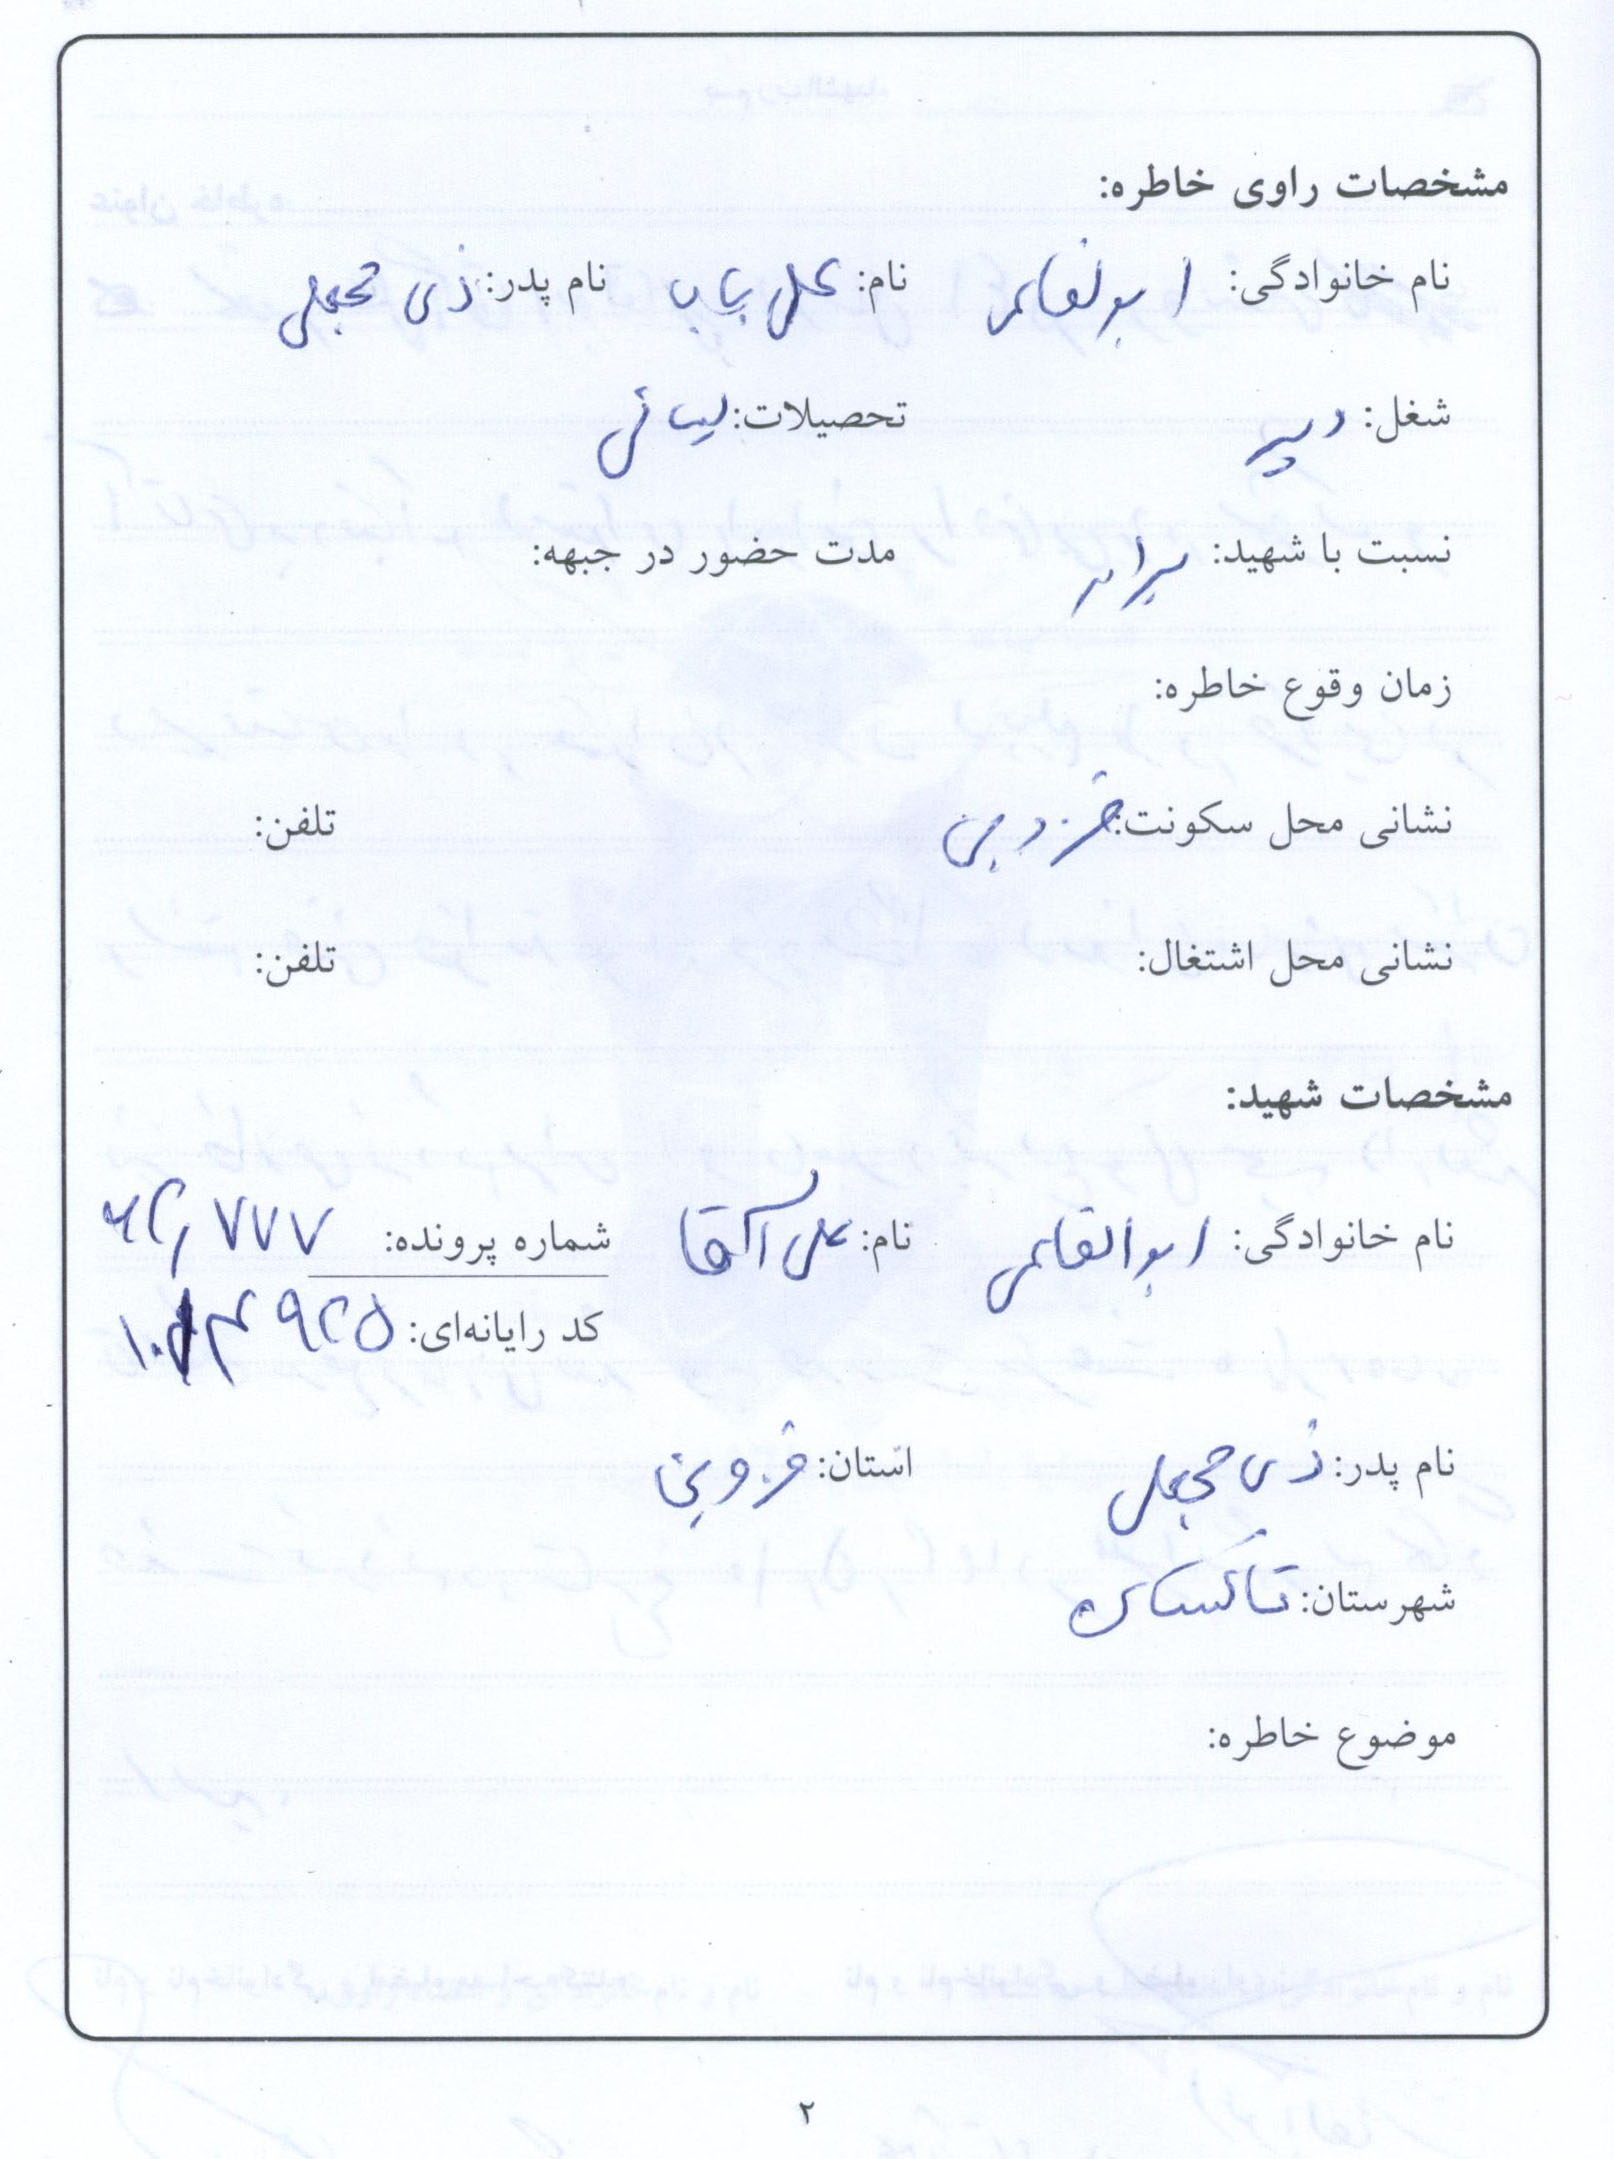 مشخصات راوی خاطره:
نام خانوادگی: ابوالقاسمی نام: علی بابا نام پدر: ذی حجعلی
شغل: دبیر تحصیلات: لیسانس
نسبت با شهید: برادر مدت حضور در جبهه:
زمان وقوع خاطره:
نشانی محل سکونت: قزوین تلفن:
نشانی محل اشتغال: تلفن:
مشخصات شهید:
نام خانوادگی: ابوالقاسمی نام: علی آقا شماره پرونده:
کد رایانه‌ای:
نام پدر: ذی حجعلی استان: قزوین
شهرستان: تاکستان
موضوع خاطره:
۲